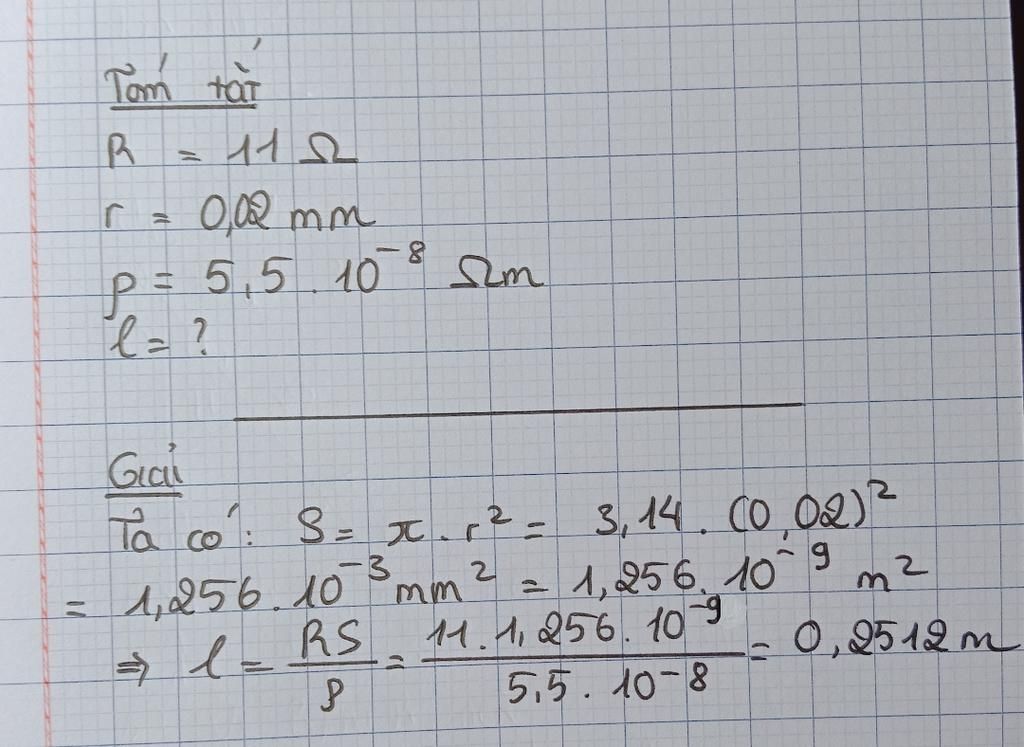 Tóm tắt
R = 11 Ω
r = 0,02 mm
ρ = 5,5 . 10⁻⁸ Ωm
l = ?
Giải
Ta có: S = π . r² = 3,14 . (0,02)²
= 1,256 . 10⁻³ mm² = 1,256 . 10⁻⁹ m²
⇒ l = RS/ρ = 11 . 1,256 . 10⁻⁹ / 5,5 . 10⁻⁸ = 0,2512 m